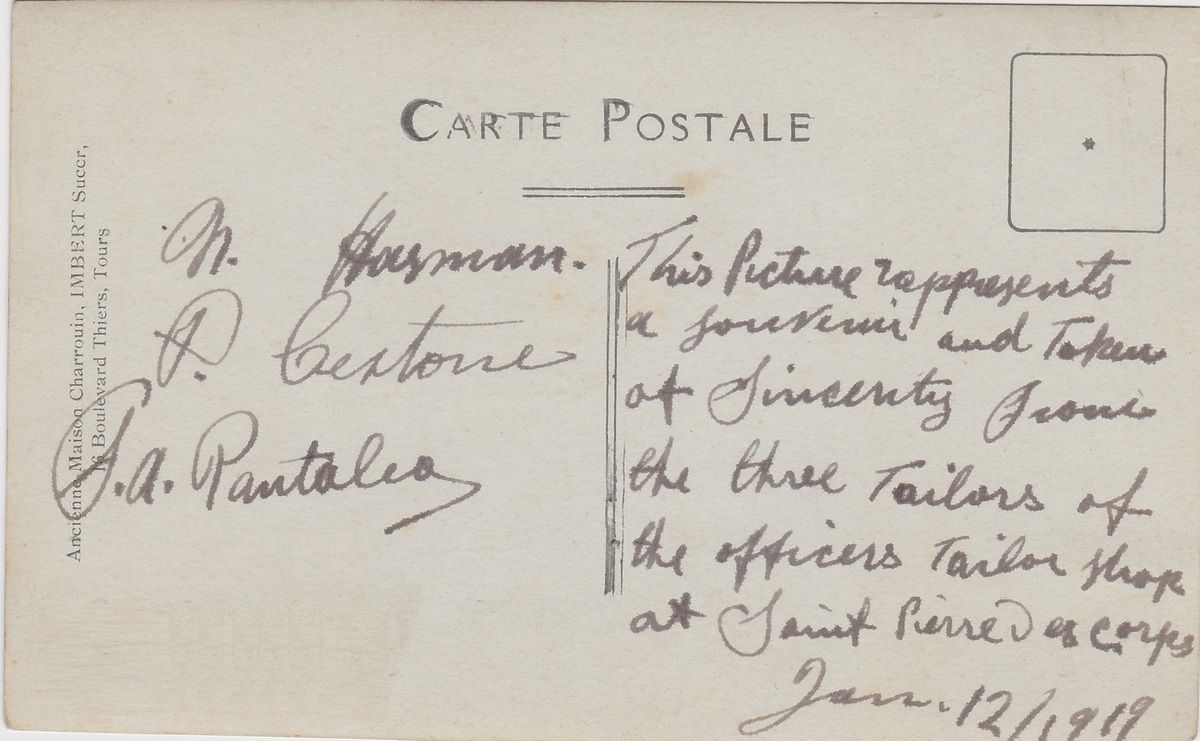 CARTE POSTALE
Ancienne Maison Charrouin, IMBERT Succr,
16 Boulevard Thiers, Tours
N. Hasman.
P. Cestone
S. A. Pantaleo
This Picture rappresents
a souvenir and Token
of Sincerity from
the three Tailors of
the officers Tailor shop
at Saint Pierre Des corps
Jan. 12/1919